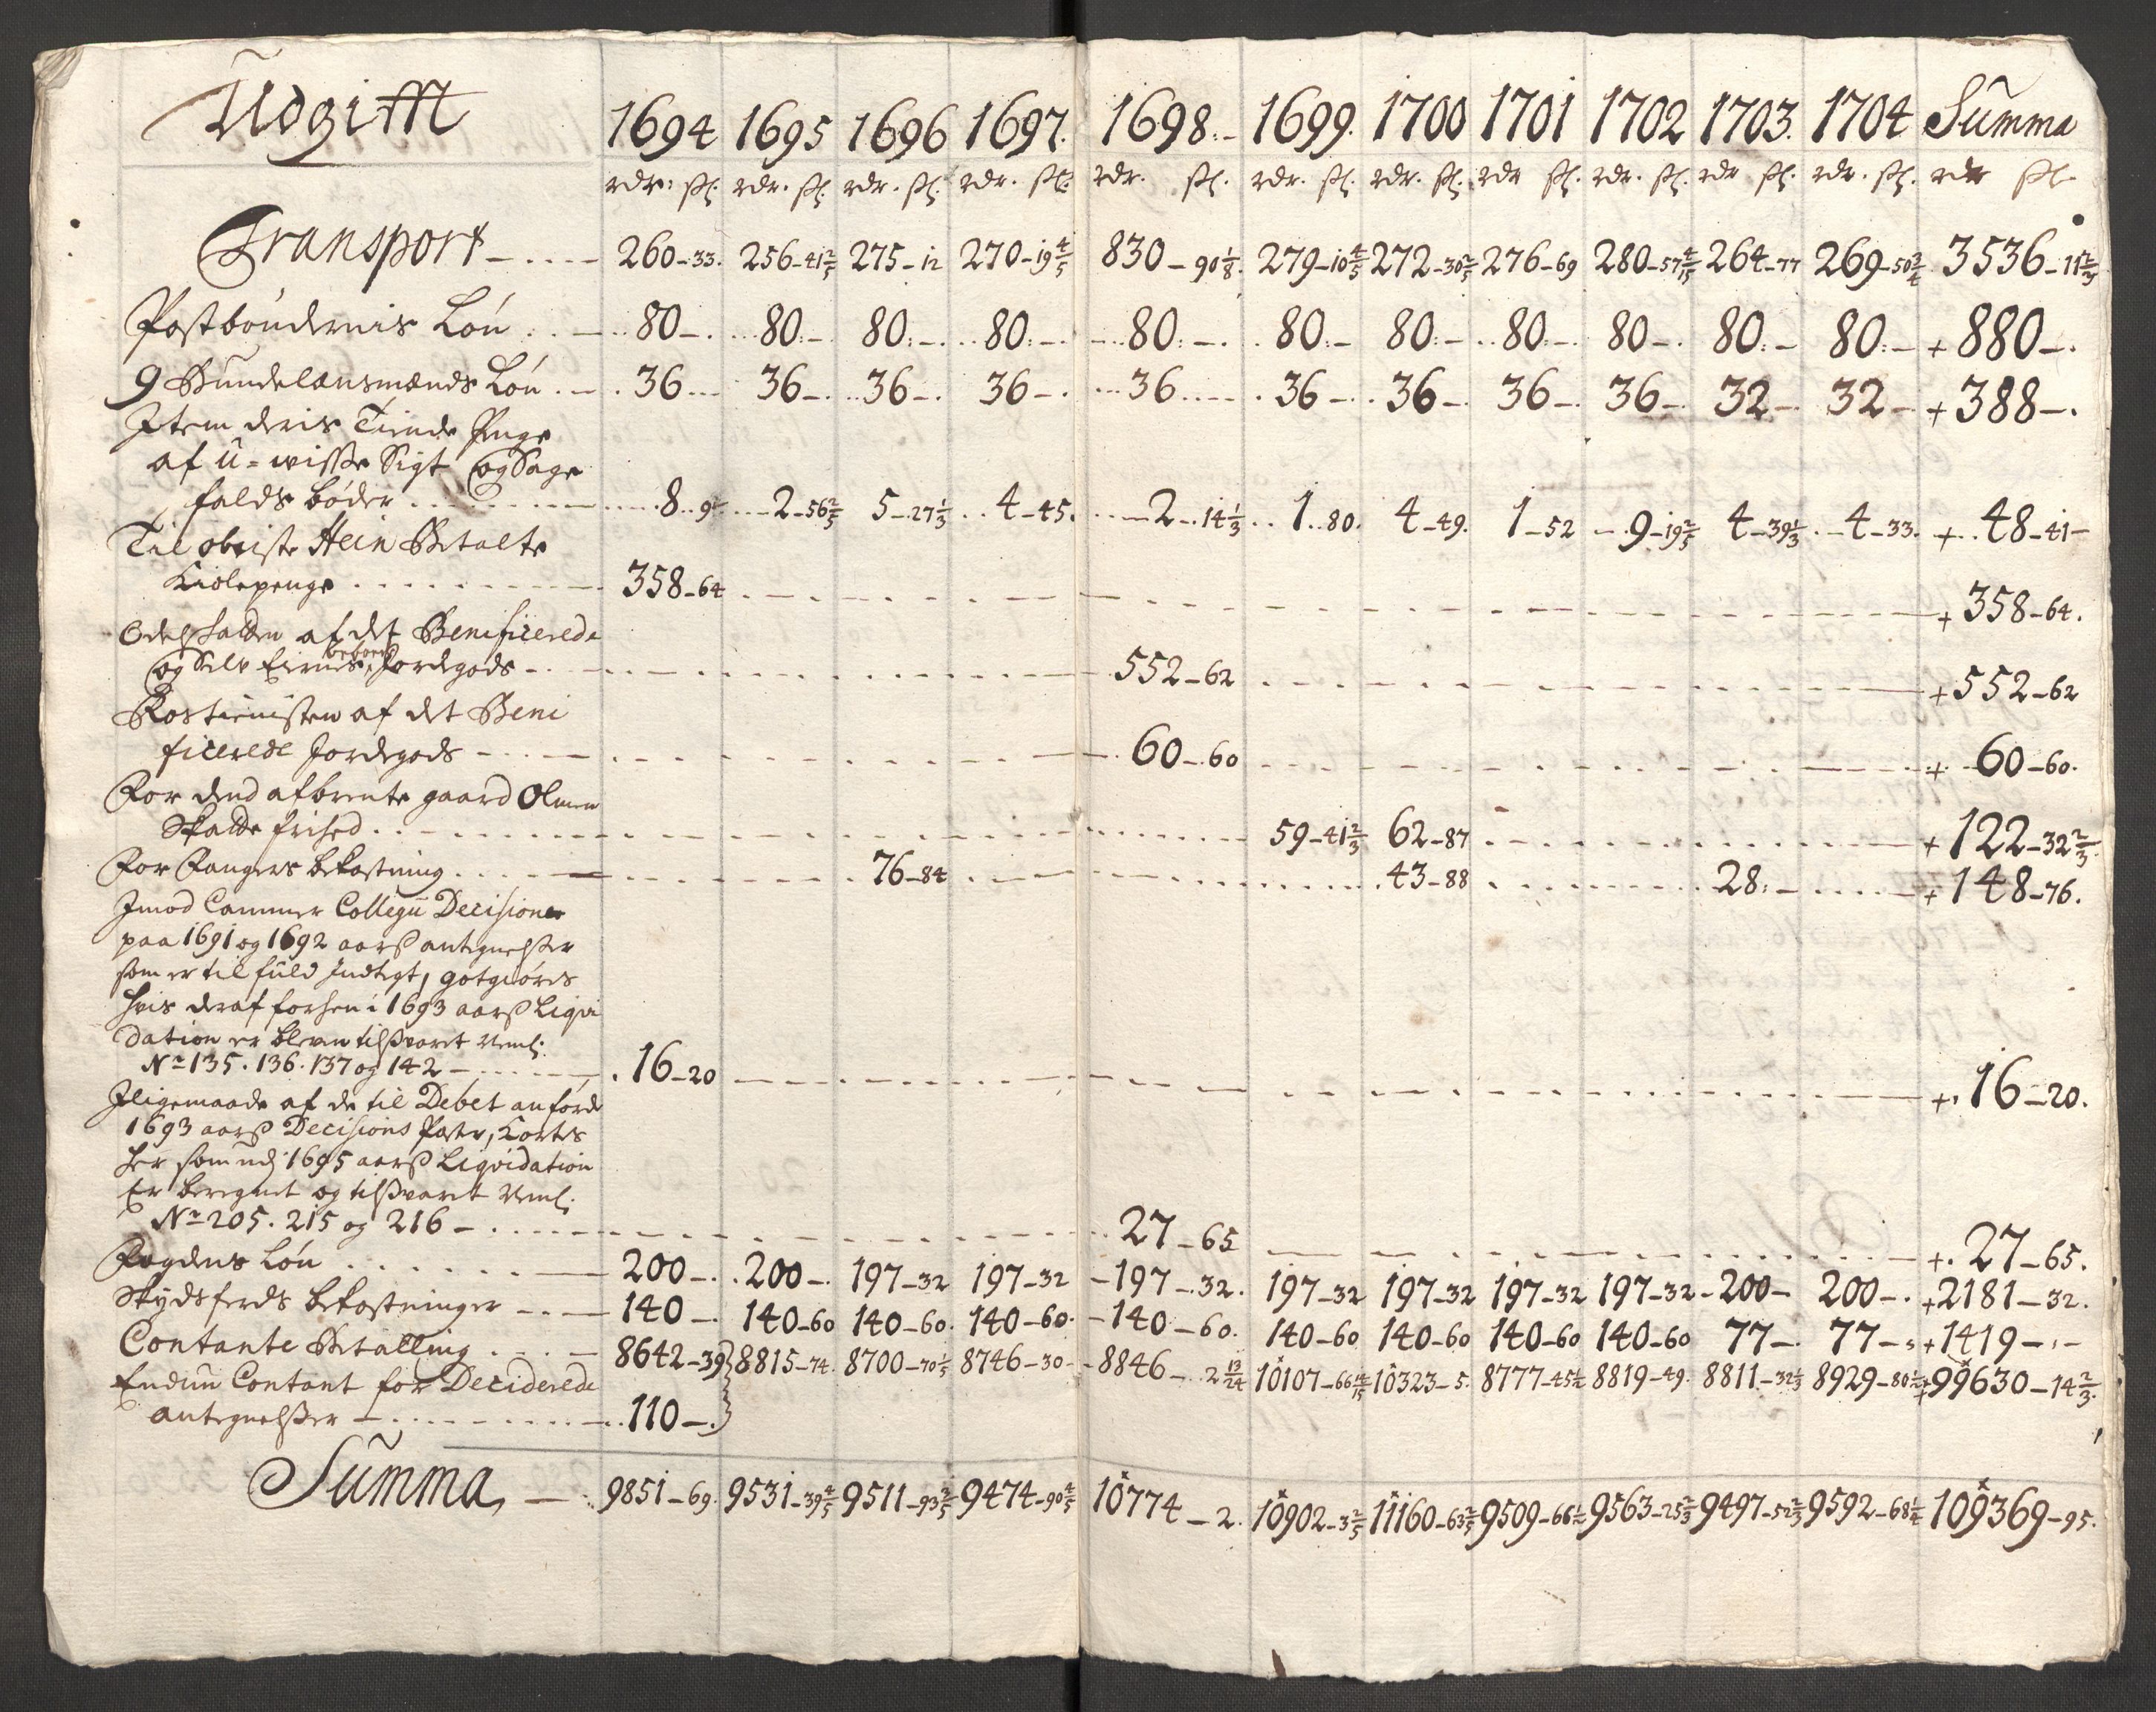 Udgifft 1694 1695 1696 1697. 1698:- 1699. 1700 1701 1702 1703. 1704 Summa
rdr: sℓ. rdr. sℓ. rdr. sℓ. rdr. sℓ. rdr. sℓ. rdr. sℓ. rdr. sℓ. rdr sℓ. rdr. sℓ. rdr sℓ. rdr. sℓ. rdr sℓ
Transport - .... 260-33. 256-41 2/5 275-12 270-19 4/5 830-90 1/8. 279-10 4/5 272-30 2/5 276-69 280-57 4/15 264-77 269-50 3/4 3536-11 2/3
Postbøndernis Løn . . - 80-. 80:- 80:-. 80:-. 80:-. 80:- 80:- 80:-. 80-. 80:- 80:- +880-.
9 Bundelænsmænds Løn . - . 36... 36-. 36-. 36-. 36.... 36-. 36-. 36-. 36-. 32- 32- +388-.
Item deris Tiende Penge
af u-wisse Sigt og Sage
falds bøder ........ 8..9 2-56 2/5 5-27 1/3 4-45. 2-14 1/3 1..80. 4-49. 1-52 9-19 2/5 4-39 1/3 4-33. + 48-41-
Til obriste Hein Betalte
Kiolepenge ........ 358-64 +358-64.
Odelskatten af det Benificerede
og Selv Eiernes beboen. Jordegods - 552-62 +552-62
Rostienisten af det Beni
ficerede Jordegods - 60-60 + 60-60.
For dend afbrente gaard Olmen
Skatte frihed . . 59-41 2/3 62-87 +122-32 2/3.
For Fangers bekostning . . . . 76-84 43-88 28:- +148-76.
Imod Cammer Collegii Decisioner
paa 1691 og 1692 aarß antegnelßer
som er til fuld Indtegt, gotgiøres
hvis deraf forhen i 1693 aarß Liqvi
dation er bleven tilßvaret Neml:
No 135. 136. 137 og 142 - 16-20 + 16-20.
Iligemaade af de til Debet anførde
1693 aarß Decisions Poster, Kortes
her som udj 1695 aarß Liqvidation
Er beregnet og tilßvaret Neml:
No 205. 215 og 216 - 27-65 + 27-65.
Fogdens Løn . . . . . . - 200-. 200-. 197-32 197-32 197-32. 197-32 197-32 197-32 197-32 200- 200-. +2181-32.
Skydsferds bekostninger - . - 140-. 140-60 140-60. 140-60. 140-60. 140-60 140-60 140-60 140-60 77-. 77-: +1419-:-
Contante Betalling . . . - 8642-39 8815-74. 8700-70 1/5 8746-30- 8846-2 13/24 10107-66 14/15 10323-5. 8777-45 1/2 8819-49. 8811-32 1/3 8929-80 1/2 +99630-14 2/3.
Endnu Contant for Deciderede
antegnelßer - ........ 110-.
Summa, - 9851-69. 9531-39 4/5 9511-93 2/5 9474-90 4/5 10774-2. 10902-3 2/5 11160-63 2/5 9509-66 1/2 9563-25 2/3 9497-52 2/3 9592-68 1/4 109369-95.